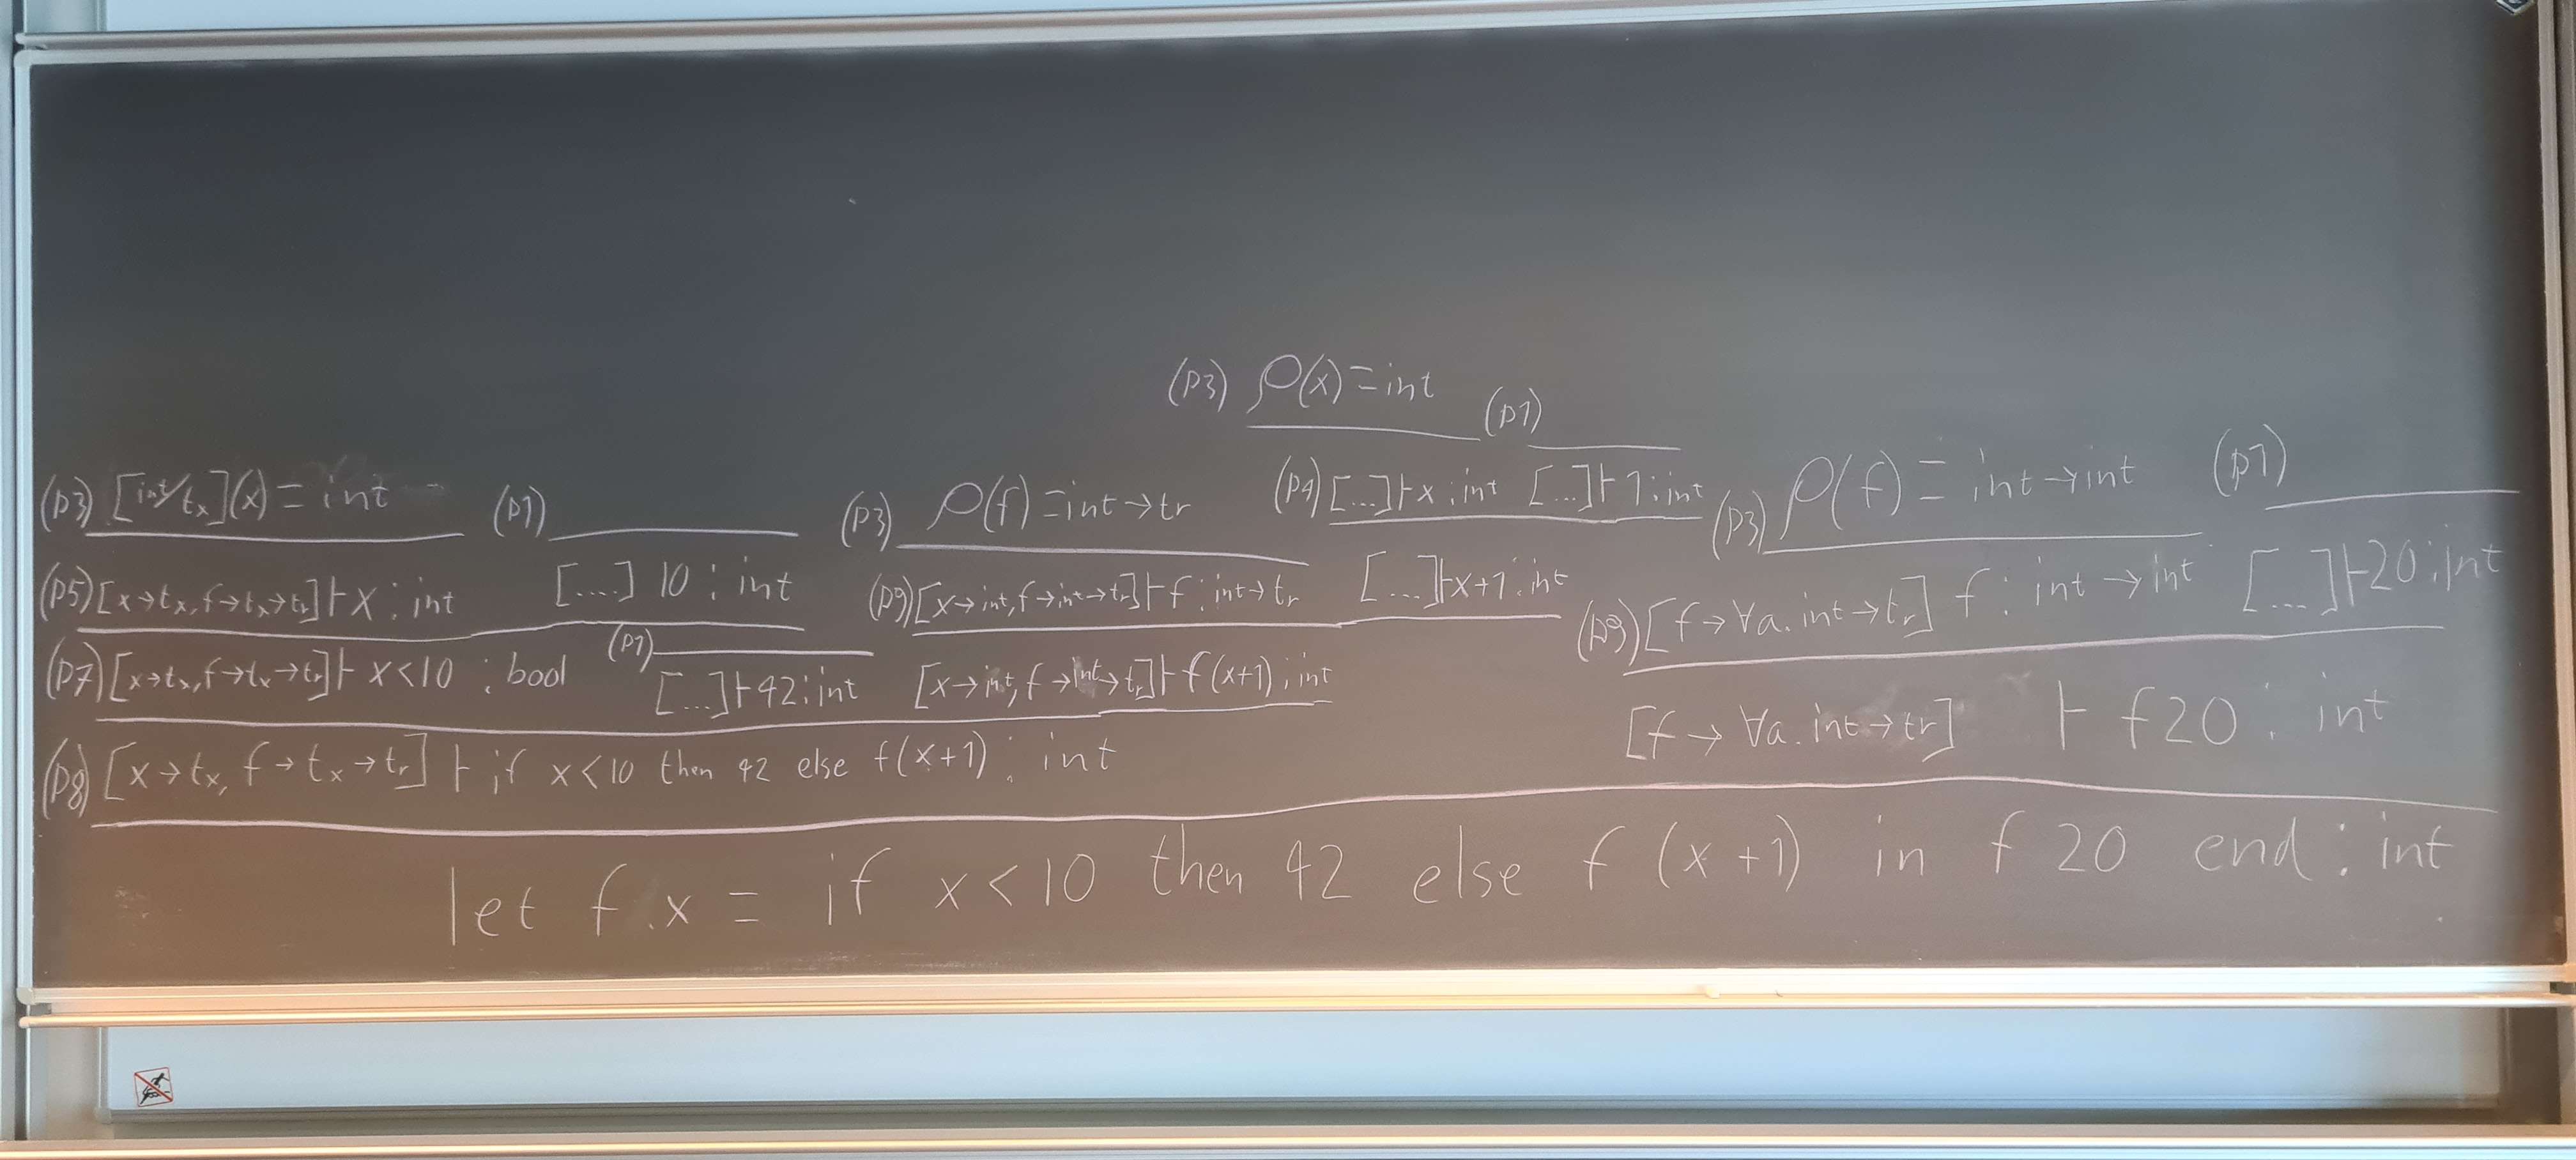 (p3) ρ(x) = int
(p1)
(p3) [int/tx](x) = int
(p1)
(p3) ρ(f) = int → tr
(p4) [...] ⊢ x : int [...] ⊢ 1 : int
(p3) ρ(f) = int → int
(p1)
(p5) [x → tx, f → tx → tr] ⊢ x : int [....] 10 : int
(p9) [x → int, f → int → tr] ⊢ f : int → tr [...] ⊢ x+1 : int
(p9) [f → ∀a. int → tr] f : int → int [...] ⊢ 20 : int
(p7) [x → tx, f → tx → tr] ⊢ x < 10 : bool
(p1)
[...] ⊢ 42 : int
[x → int, f → int → tr] ⊢ f(x+1) : int
[f → ∀a. int → tr] ⊢ f 20 : int
(p8) [x → tx, f → tx → tr] ⊢ if x < 10 then 42 else f(x+1) : int
let f x = if x < 10 then 42 else f (x + 1) in f 20 end : int